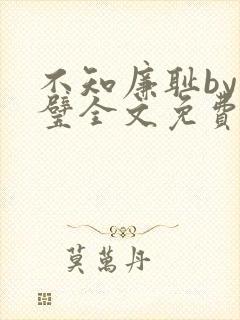 不知廉耻by
璧全文免費
莫萬丹